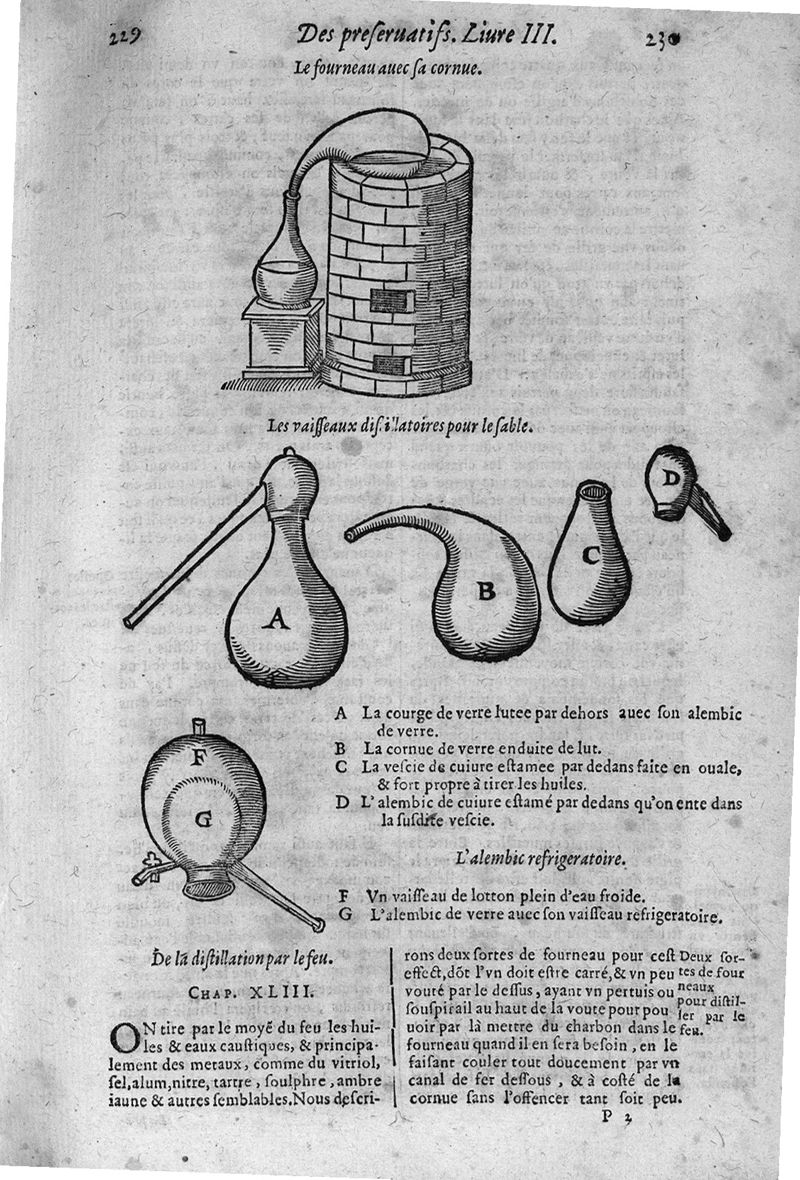 229
Des preſeruatifs. Liure III.
230
Le fourneau auec ſa cornue.
Les vaiſſeaux diſtillatoires pour le ſable.
A
B
C
D
A La courge de verre lutee par dehors auec ſon alembic
de verre.
B La cornue de verre enduite de lut.
C La veſcie de cuiure eſtamee par dedans faite en ouale,
& fort propre à tirer les huiles.
D L'alembic de cuiure eſtamé par dedans qu'on ente dans
la ſuſdite veſcie.
F
G
L'alembic refrigeratoire.
F Vn vaiſſeau de lotton plein d'eau froide.
G L'alembic de verre auec ſon vaiſſeau refrigeratoire.
De la diſtillation par le feu.
CHAP. XLIII.
ON tire par le moyẽ du feu les hui-
les & eaux cauſtiques, & principa-
lement des metaux, comme du vitriol,
ſel, alum, nitre, tartre, ſoulphre, ambre
iaune & autres ſemblables. Nous deſcri-
rons deux ſortes de fourneau pour ceſt
effect, dõt l'vn doit eſtre carré, & vn peu
vouté par le deſſus, ayant vn pertuis ou
ſouſpirail au haut de la voute pour pou
uoir par là mettre du charbon dans le
fourneau quand il en ſera beſoin, en le
faiſant couler tout doucement par vn
canal de fer deſſous, & à coſté de la
cornue ſans l'offencer tant ſoit peu.
Deux ſor-
tes de four
neaux
pour diſtil-
ler par le
feu.
P 3